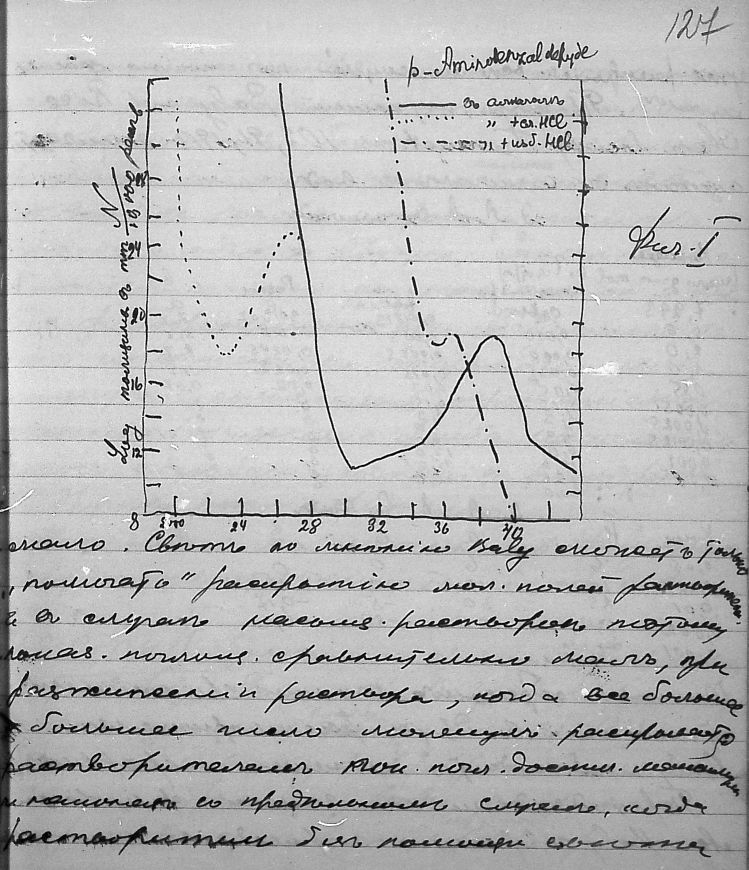 127
p-Aminobenzaldehyde
въ алкаголѣ
" + сл. HCl
" + изб. HCl
Фиг. I
Log толщины въ mm N/10000 раств
28
24
20
16
12
8
200 24 28 32 36 40
мало. Свѣтъ по мнѣнію Baly можетъ только
„помогать" раскрытію мол. полей растворит.
въ случаѣ насыщ. растворовъ потому
погл. сравнительно малъ, при
разжиженіи раствора, когда все большее
и большее число молекулъ раскрывается
растворителемъ мол. погл. достиг.
въ предѣльномъ случаѣ, когда
растворитель безъ помощи свѣта